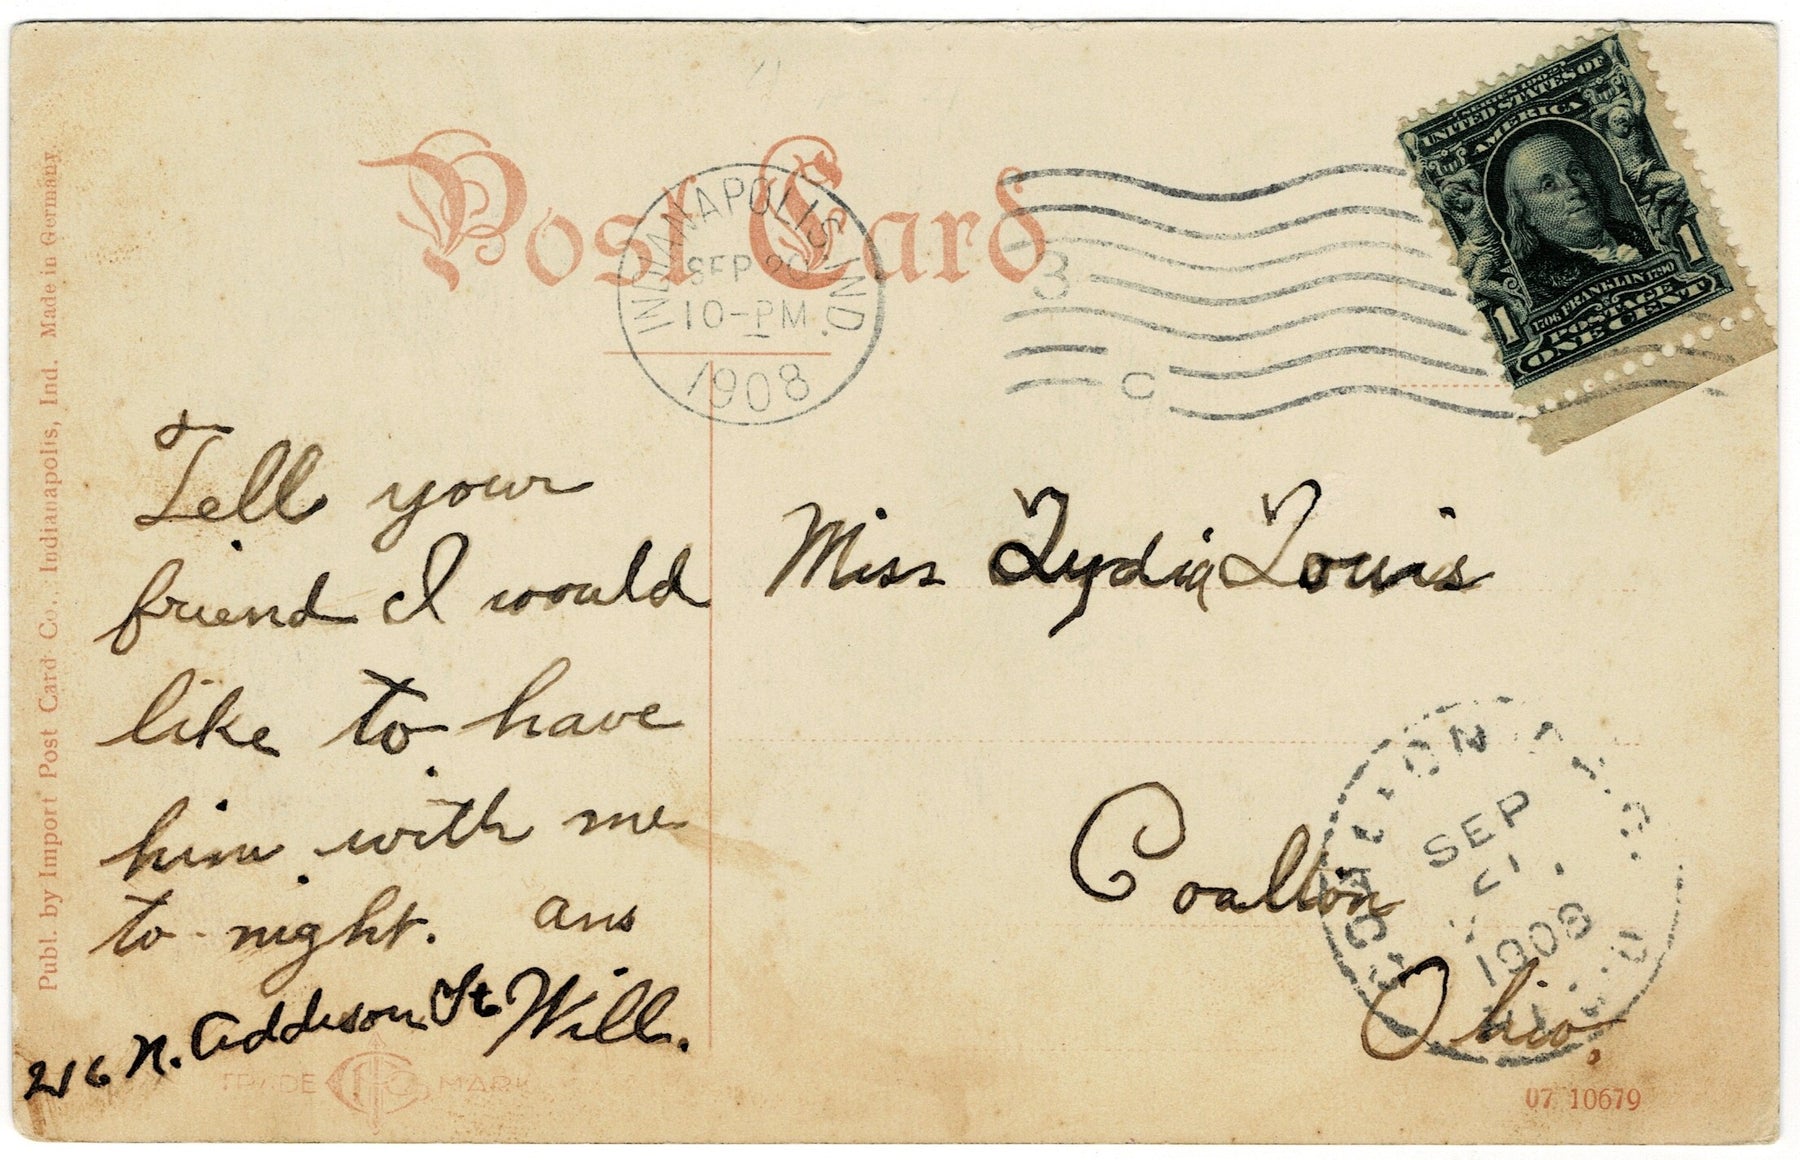 Post Card
INDIANAPOLIS, IND.
SEP 20
10-PM
1908
3
C
SERIES 1902
UNITED STATES OF
AMERICA
1706 FRANKLIN 1790
POSTAGE
1 ONE CENT 1
Tell your
friend I would
like to have
him with me
to-night. ans
Will.
216 N. Addison St
Miss Lydia Louis
Coalton
Ohio.
COALTON
SEP
21
1908
OHIO
REC'D
TRADE MARK
07 10679
Publ. by Import Post Card Co., Indianapolis, Ind. Made in Germany.